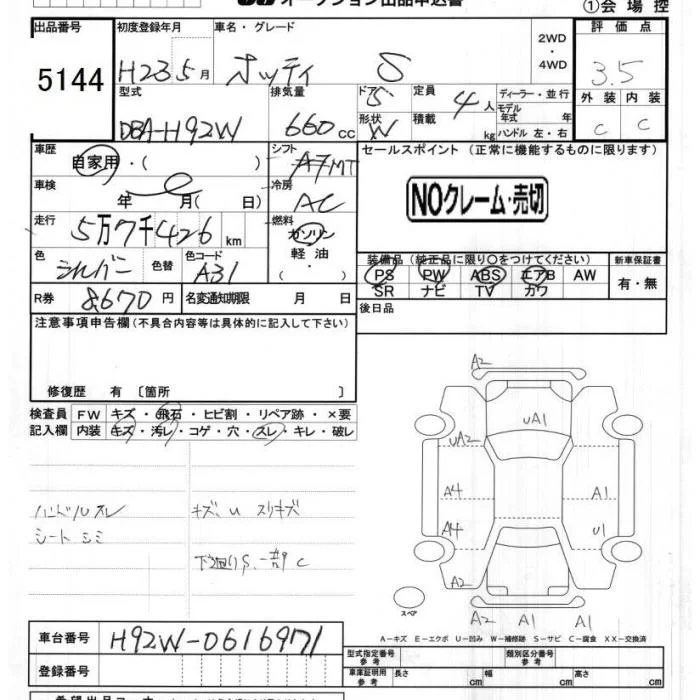 オークション出品申込書 ①会場控
出品番号 初度登録年月 車名・グレード 2WD・4WD 評価点
5144 H23 5月 オッティ S 3.5
型式 排気量 ドア 形状 定員 積載 ディーラー・並行 モデル年式 年 ハンドル 左・右 外装 内装
DBA-H92W 660cc 5 W 4人 kg C C
車歴 シフト セールスポイント (正常に機能するものに限ります)
自家用・( ) AT MT
車検 年 月( 日) 冷房 AC NOクレーム・売切
走行 5万7千426km 燃料 ガソリン・軽油・( )
色 シルバー 色替 色コード A31 装備品 (純正品に限り○をつけてください) 新車保証書
PS PW ABS エアB AW 有・無
SR ナビ TV カワ
R券 8,670円 名変通知期限 月 日 後日品
注意事項申告欄 (不具合内容等は具体的に記入して下さい)
修復歴 有 〔箇所 〕
検査員 FW キズ・飛石・ヒビ割・リペア跡・×要
記入欄 内装 キズ・汚レ・コゲ・穴・スレ・キレ・破レ
ハンドルスレ キズ、U スリキズ
シートシミ 下回りS、一部C
A2
UA1
UA2
A4 A1
A4 U1
A2
スペア A2 A1 A1
A-キズ E-エクボ U-凹み W-補修跡 S-サビ C-腐食 XX-交換済
車台番号 H92W-0616971
型式指定番号 参考 類別区分番号 参考
登録番号 車庫証明用 参考 長さ cm 幅 cm 高さ cm